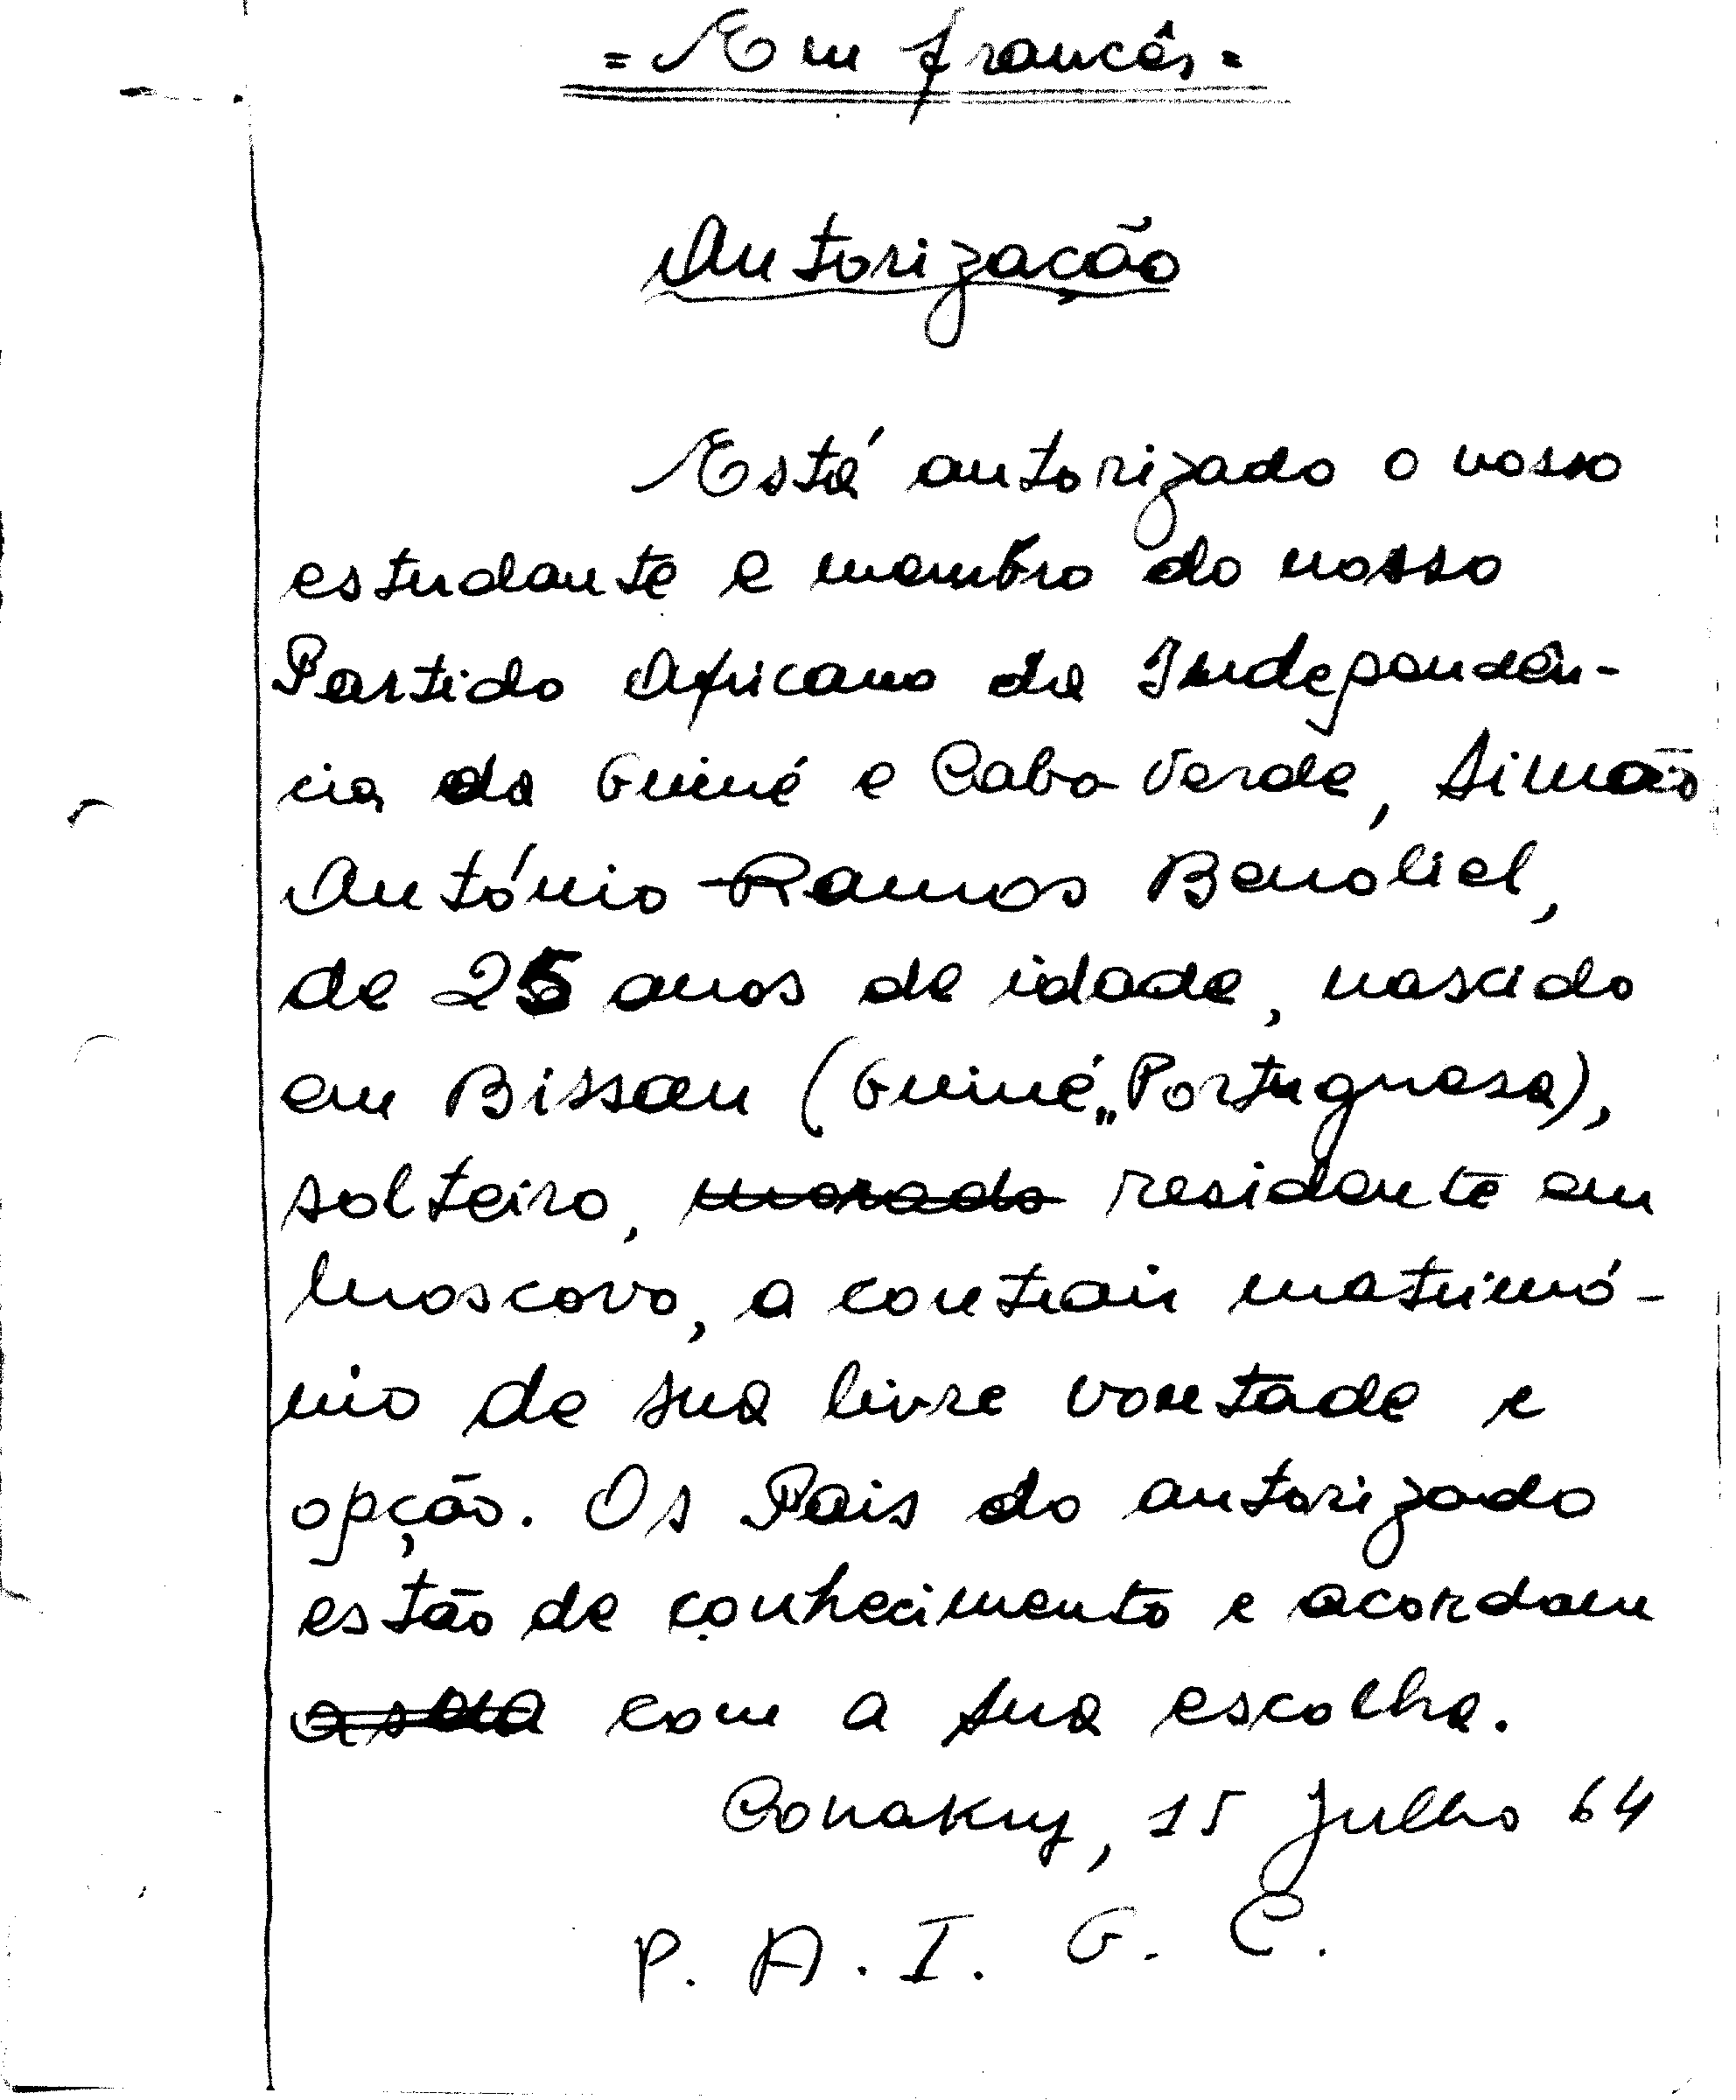 = Em francês =
Autorização
Está autorizado o nosso
estudante e membro do nosso
Partido Africano da Independên-
cia da Guiné e Cabo Verde, Simão
António Ramos Benoliel,
de 25 anos de idade, nascido
em Bissau (Guiné "Portuguesa),
solteiro, morado residente em
Moscovo, a contrair matrimó-
nio de sua livre vontade e
opção. Os Pais do autorizado
estão de conhecimento e acordam
com a sua escolha.
Conakry, 15 Julho 64
P. A. I. G. C.